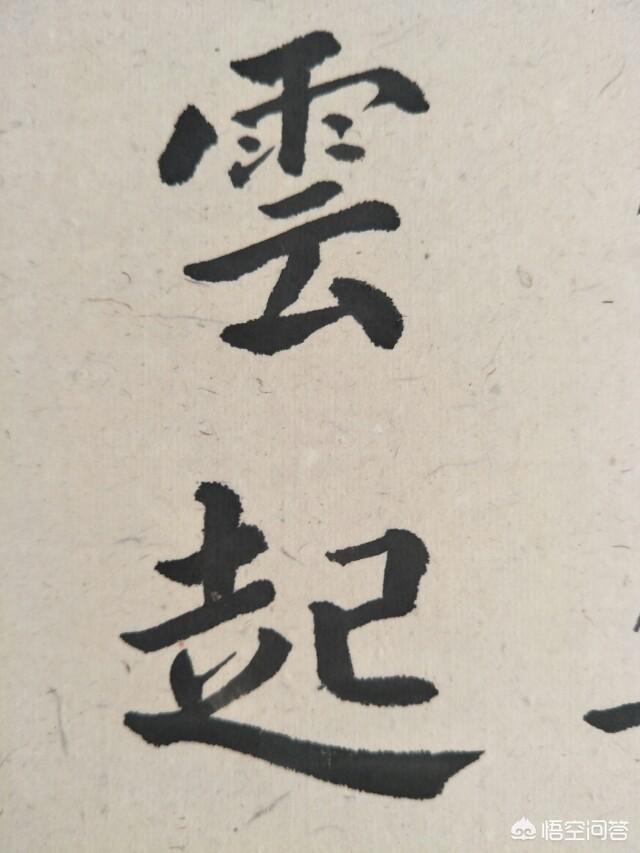 雲
起
悟空问答